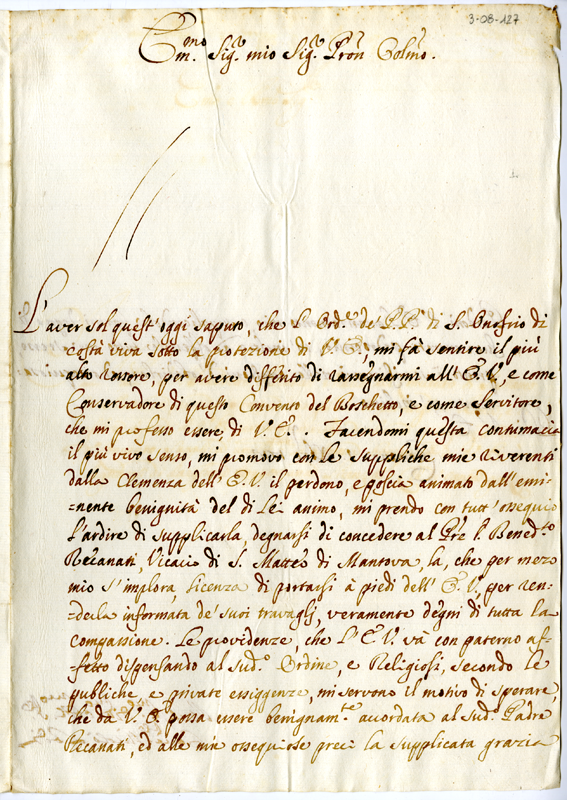 3-08-127
Em.mo Sig.r mio Sig.r Pron Colmo.
L'aver sol quest'oggi saputo, che l'Ord.e de' P.P. di S. Onofrio di
costà viva sotto la protezione di V. E., mi fà sentire il più
alto rossore, per avere differito di rassegnarmi all'E. V., e come
Conservadore di questo Convento del Boschetto, e come servitore,
che mi professo essere, di V. E. . Facendomi questa contumacia
il più vivo senso, mi promovo con le suppliche mie riverenti
dalla Clemenza dell'E. V. il perdono, e poscia animato dall'emi-
=nente benignità del di Lei animo, mi prendo con tutt'ossequio
l'ardire di supplicarla, degnarsi di concedere al Pre f. Bened.to
Recanati, Vicario di S. Matteo di Mantova, la, che per mezo
mio s'implora, licenza di portarsi à piedi dell'E. V., per ren-
=derla informata de' suoi travaglj, veramente degni di tutta la
compassione. Le providenze, che l'E. V. và con paterno af-
=fetto dispensando al sud.o Ordine, e Religiosi, secondo le
publiche, e private essiggenze, mi servono il motivo di sperare,
che da V. E. possa essere benignam.te accordata al sud.o Padre
Recanati, ed alle mie ossequiose preci la supplicata grazia